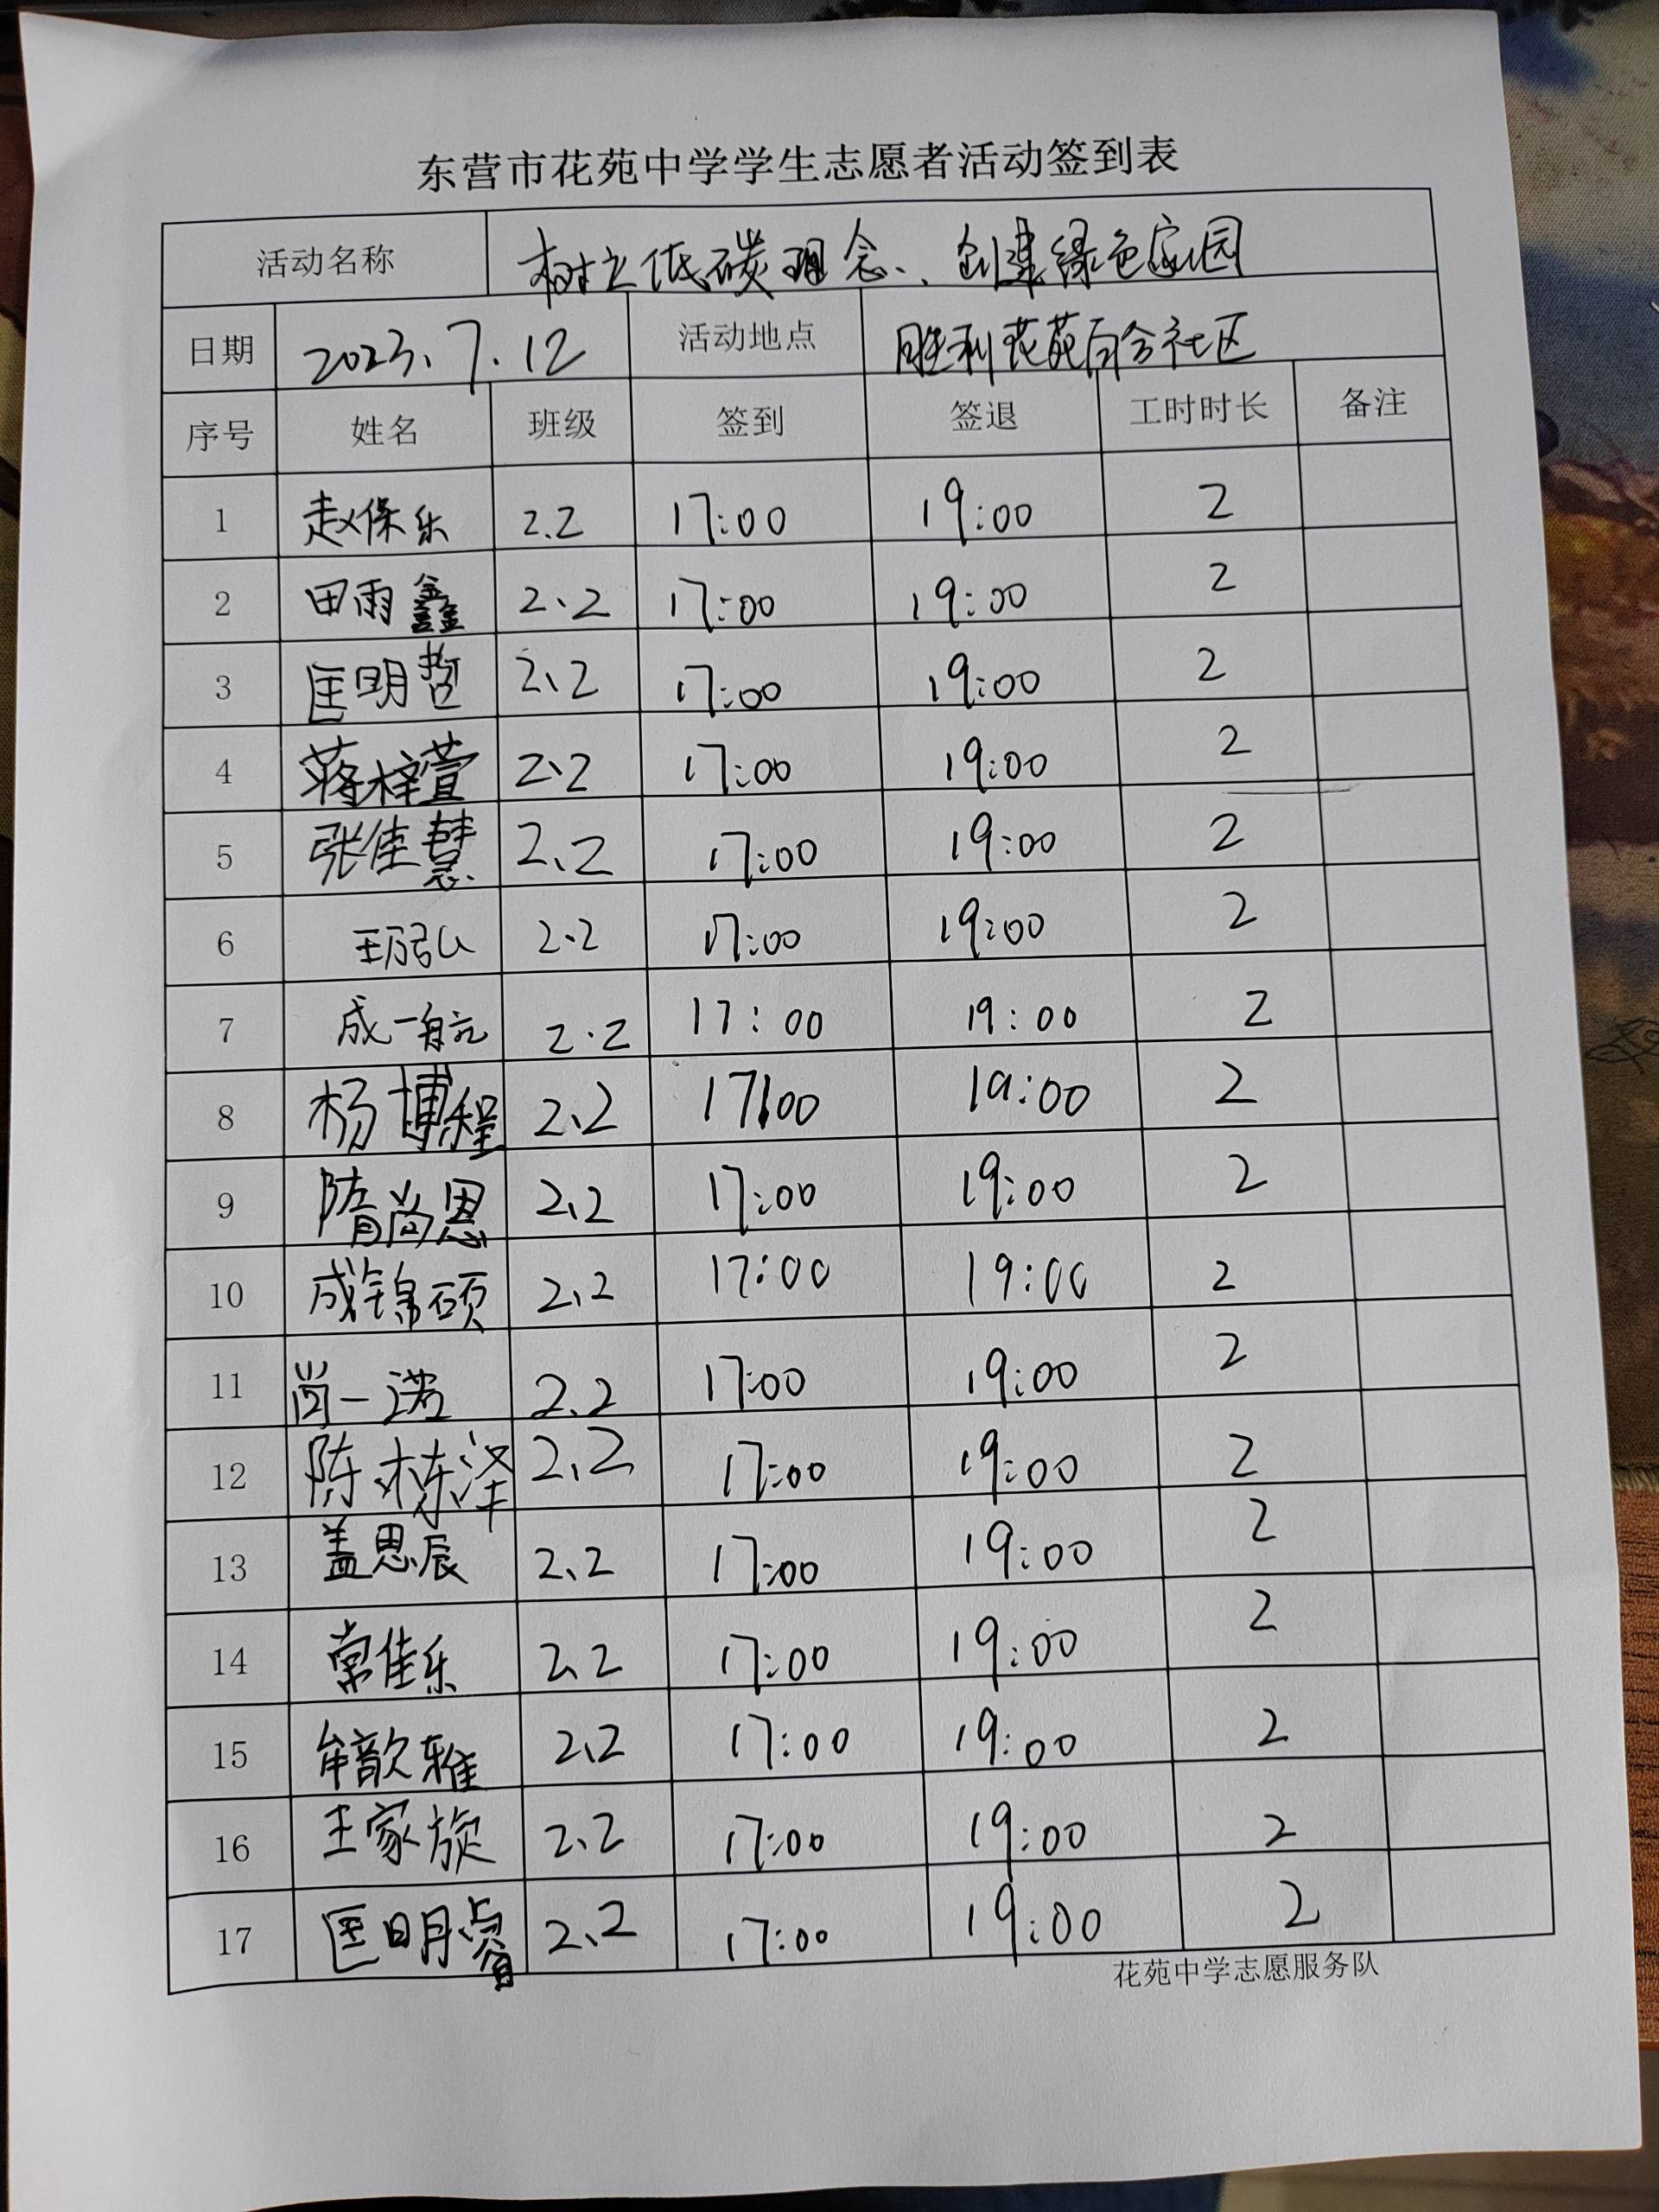 东营市花苑中学学生志愿者活动签到表
活动名称 树立低碳理念、创建绿色家园
日期 2023.7.12 活动地点 胜利花苑百合社区
序号 姓名 班级 签到 签退 工时时长 备注
1 赵保乐 2.2 17:00 19:00 2
2 田雨鑫 2、2 17:00 19:00 2
3 匡明哲 2、2 17:00 19:00 2
4 蒋梓萱 2、2 17:00 19:00 2
5 张佳慧 2、2 17:00 19:00 2
6 2.2 17:00 19:00 2
7 成一航 2.2 17:00 19:00 2
8 杨博程 2、2 17:00 19:00 2
9 隋尚恩 2、2 17:00 19:00 2
10 成锦硕 2、2 17:00 19:00 2
11 尚一诺 2、2 17:00 19:00 2
12 陈栋泽 2、2 17:00 19:00 2
13 盖思辰 2、2 17:00 19:00 2
14 常佳乐 2、2 17:00 19:00 2
15 牟歆雅 2、2 17:00 19:00 2
16 王家旋 2、2 17:00 19:00 2
17 匡明睿 2、2 17:00 19:00 2
花苑中学志愿服务队